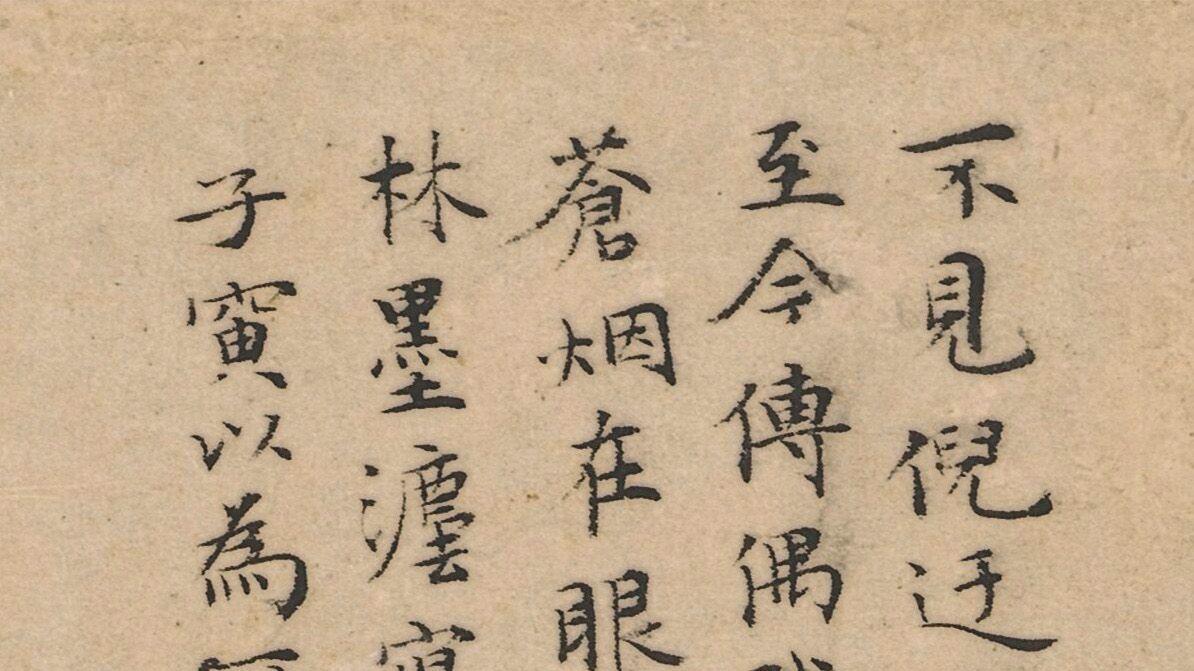 不見倪迂
至今傳偶
蒼烟在眼
林墨瀋
子寅以為